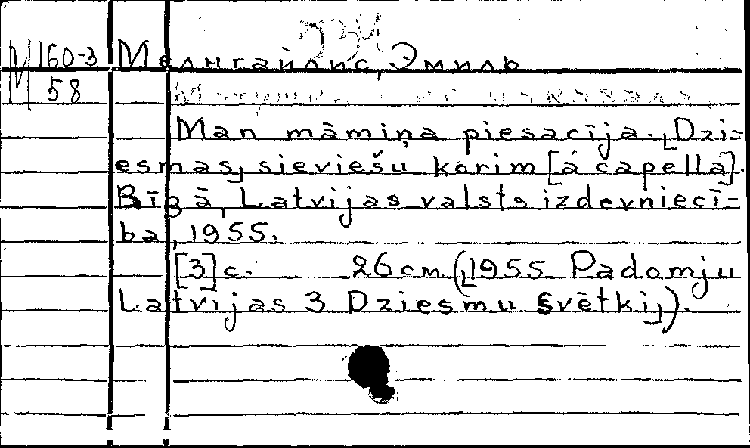 М 160-3 Мелнгайлис, Эмиль
58
Man māmiņa piesacīja. [Dzi-
esmas] sieviešu korim [á čapella].
Rīgā, Latvijas valsts izdevniecī-
ba, 1955.
[3] с. 26 см ([1955 Padomju
Latvijas 3 Dziesmu svētki]).